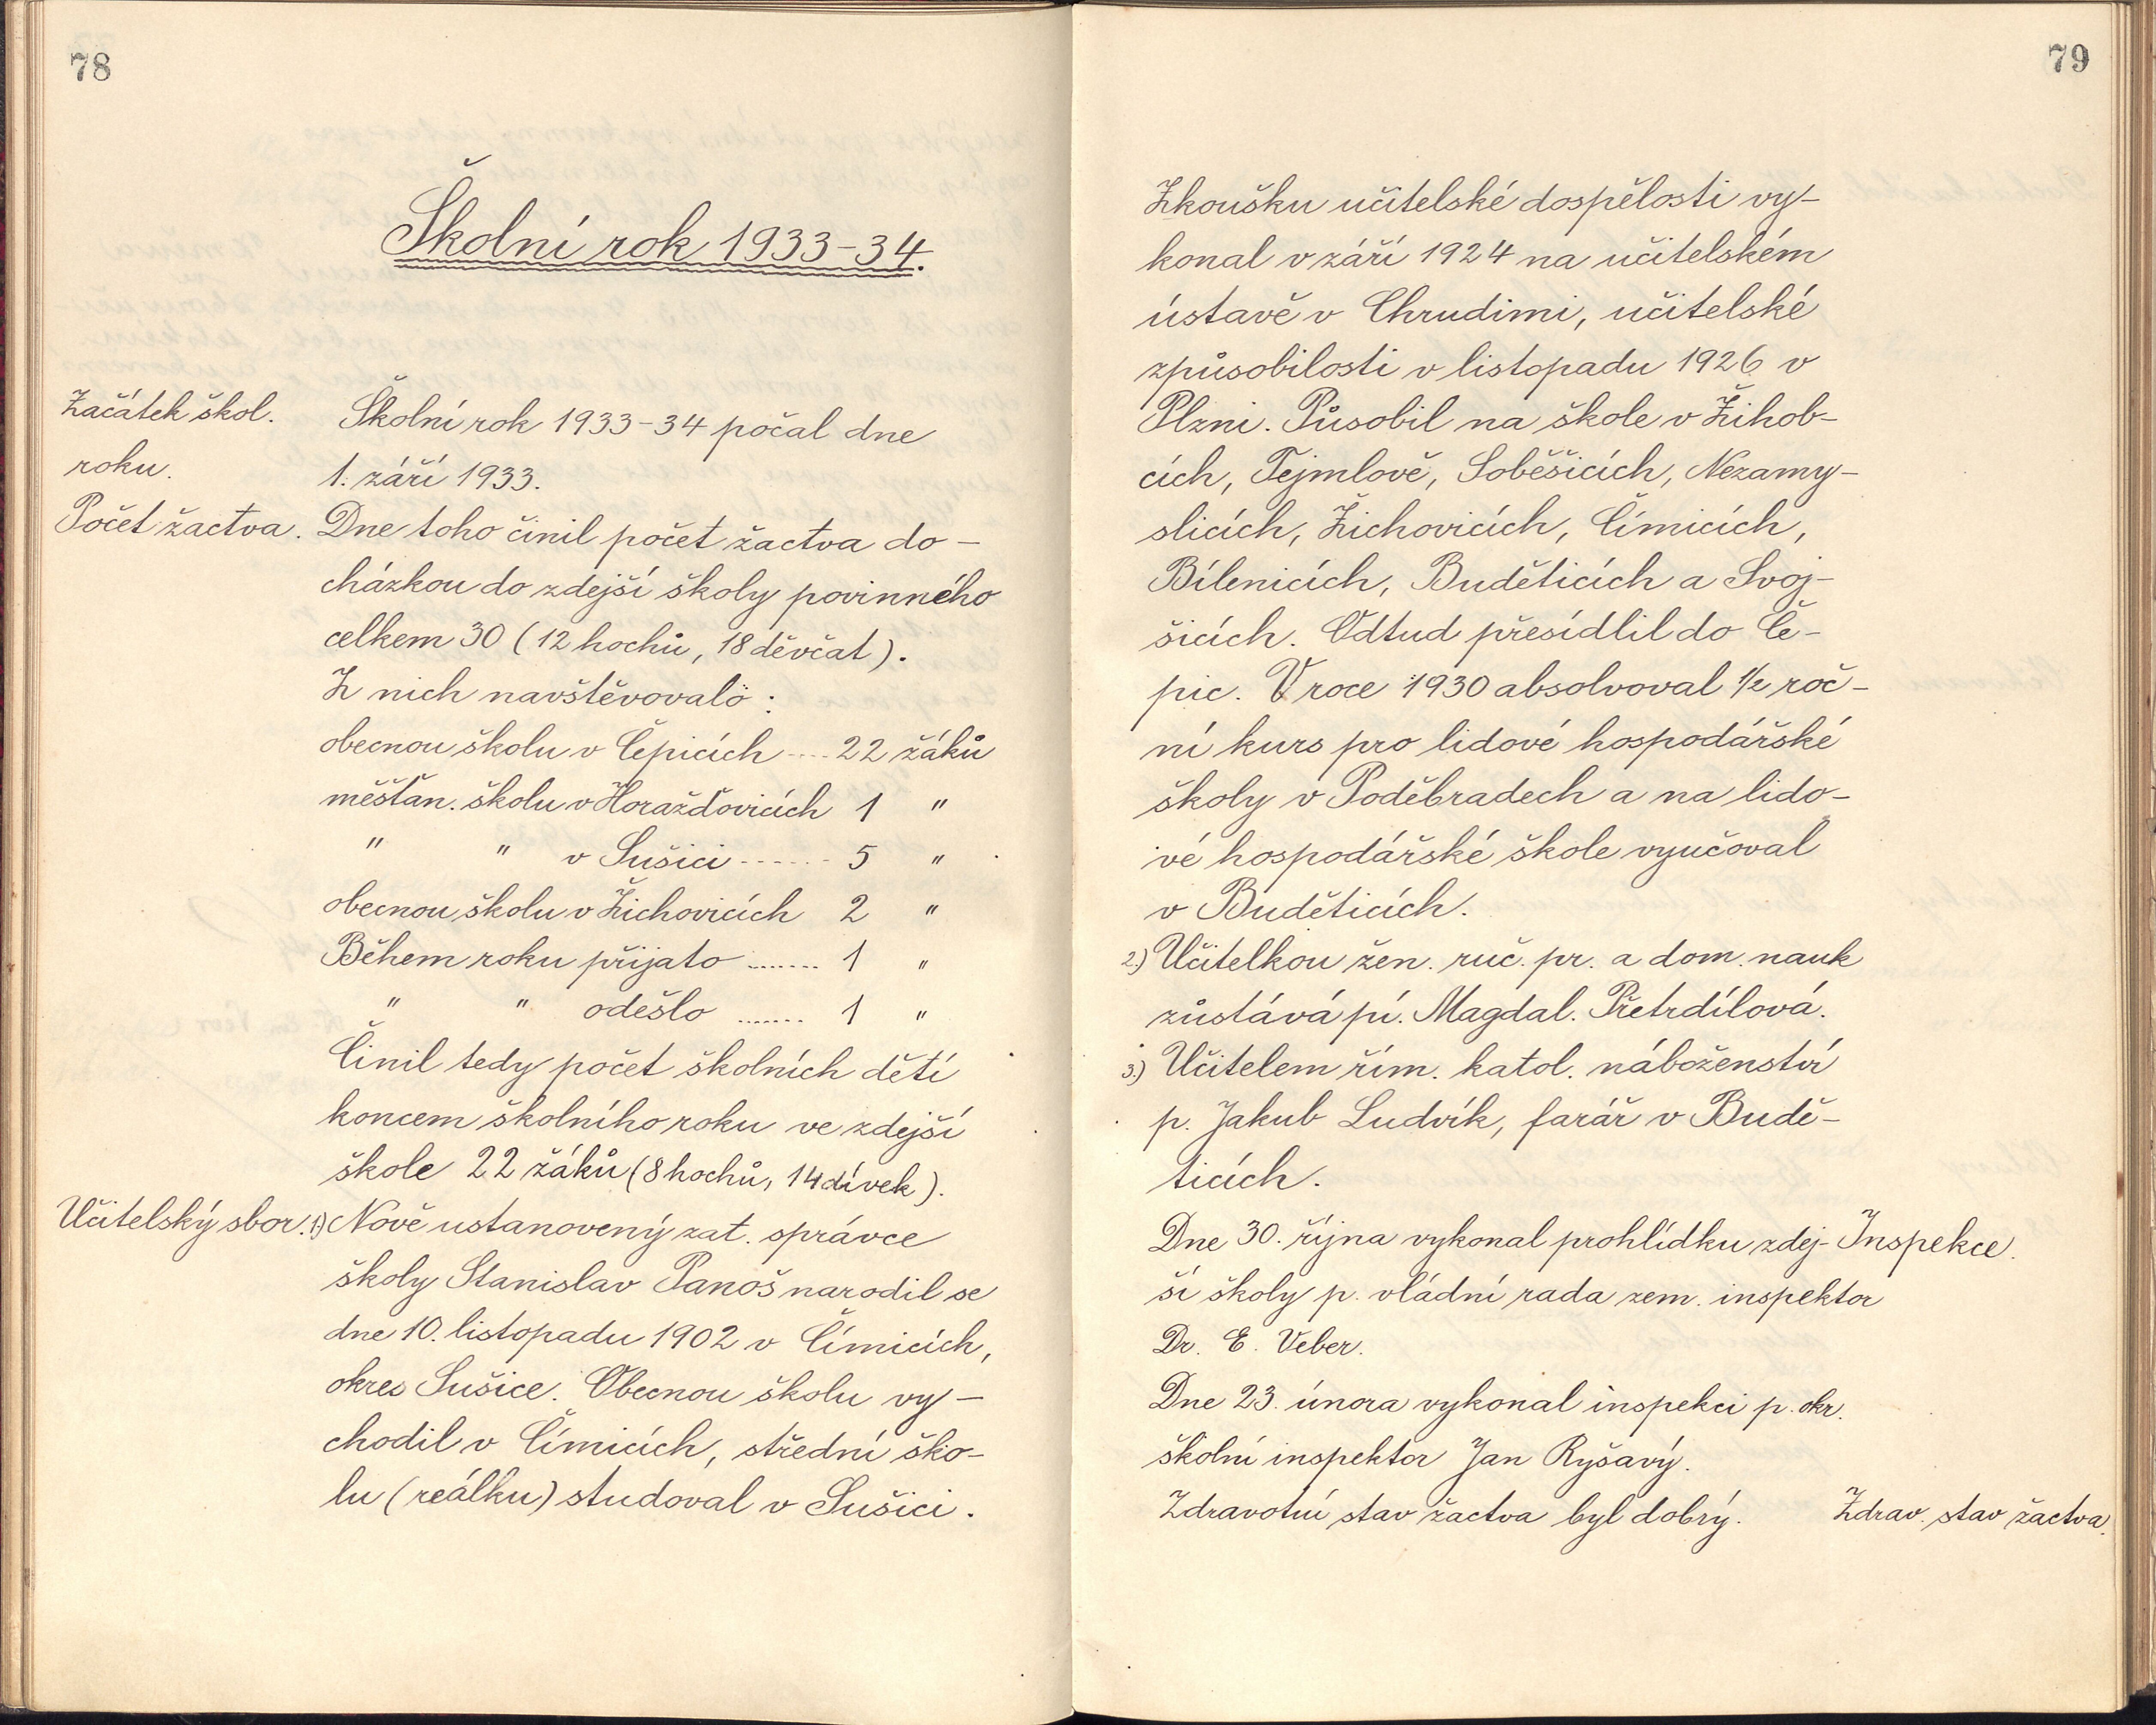 78
Školní rok 1933-34.
Začátek škol.
roku.
Školní rok 1933-34 počal dne
1. září 1933.
Počet žactva.
Dne toho činil počet žactva do-
cházkou do zdejší školy povinného
celkem 30 (12 hochů, 18 děvčat).
Z nich navštěvovalo:
obecnou školu v Čepicích .... 22 žáků
měšťan. školu v Horažďovicích 1 "
" " v Sušici ------ 5 "
obecnou školu v Žichovicích 2 "
Během roku přijato ....... 1 "
" " odešlo ....... 1 "
Činil tedy počet školních dětí
koncem školního roku ve zdejší
škole 22 žáků (8 hochů, 14 dívek).
Učitelský sbor.
1) Nově ustanovený zat. správce
školy Stanislav Panoš narodil se
dne 10. listopadu 1902 v Čímicích,
okres Sušice. Obecnou školu vy-
chodil v Čímicích, střední ško-
lu (reálku) studoval v Sušici.
79
Zkoušku učitelské dospělosti vy-
konal v září 1924 na učitelském
ústavě v Chrudimi, učitelské
způsobilosti v listopadu 1926 v
Plzni. Působil na škole v Žihob-
cích, Tejmlově, Soběšicích, Nezamy-
slicích, Žichovicích, Čímicích,
Bílenicích, Buděticích a Svoj-
šicích. Odtud přesídlil do Če-
pic. V roce 1930 absolvoval ½ roč-
ní kurs pro lidové hospodářské
školy v Poděbradech a na lido-
vé hospodářské škole vyučoval
v Buděticích.
2.) Učitelkou žen. ruč. pr. a dom. nauk
zůstává pí. Magdal. Přetrdílová.
3.) Učitelem řím. katol. náboženství
p. Jakub Ludvík, farář v Budě-
ticích.
Dne 30. října vykonal prohlídku zdej-
Inspekce.
ší školy p. vládní rada zem. inspektor
Dr. E. Veber.
Dne 23. února vykonal inspekci p. okr.
školní inspektor Jan Ryšavý.
Zdravotní stav žactva byl dobrý.
Zdrav. stav žactva.